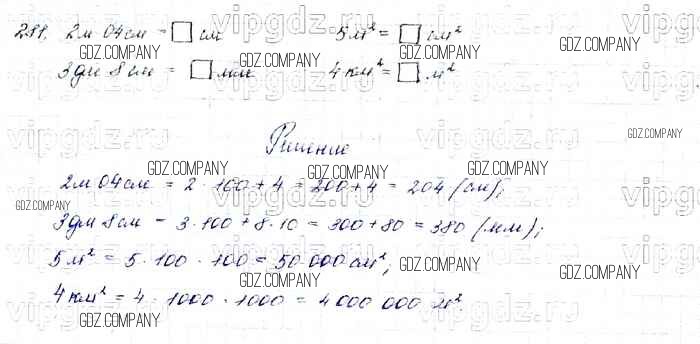 281. 2м 04см = □ см 5 м² = □ см²
3дм 8см = □ мм 4 км² = □ м²
Решение
2м 04см = 2 · 100 + 4 = 200 + 4 = 204 (см);
3дм 8см = 3 · 100 + 8 · 10 = 300 + 80 = 380 (мм);
5 м² = 5 · 100 · 100 = 50 000 см²;
4 км² = 4 · 1000 · 1000 = 4 000 000 м²